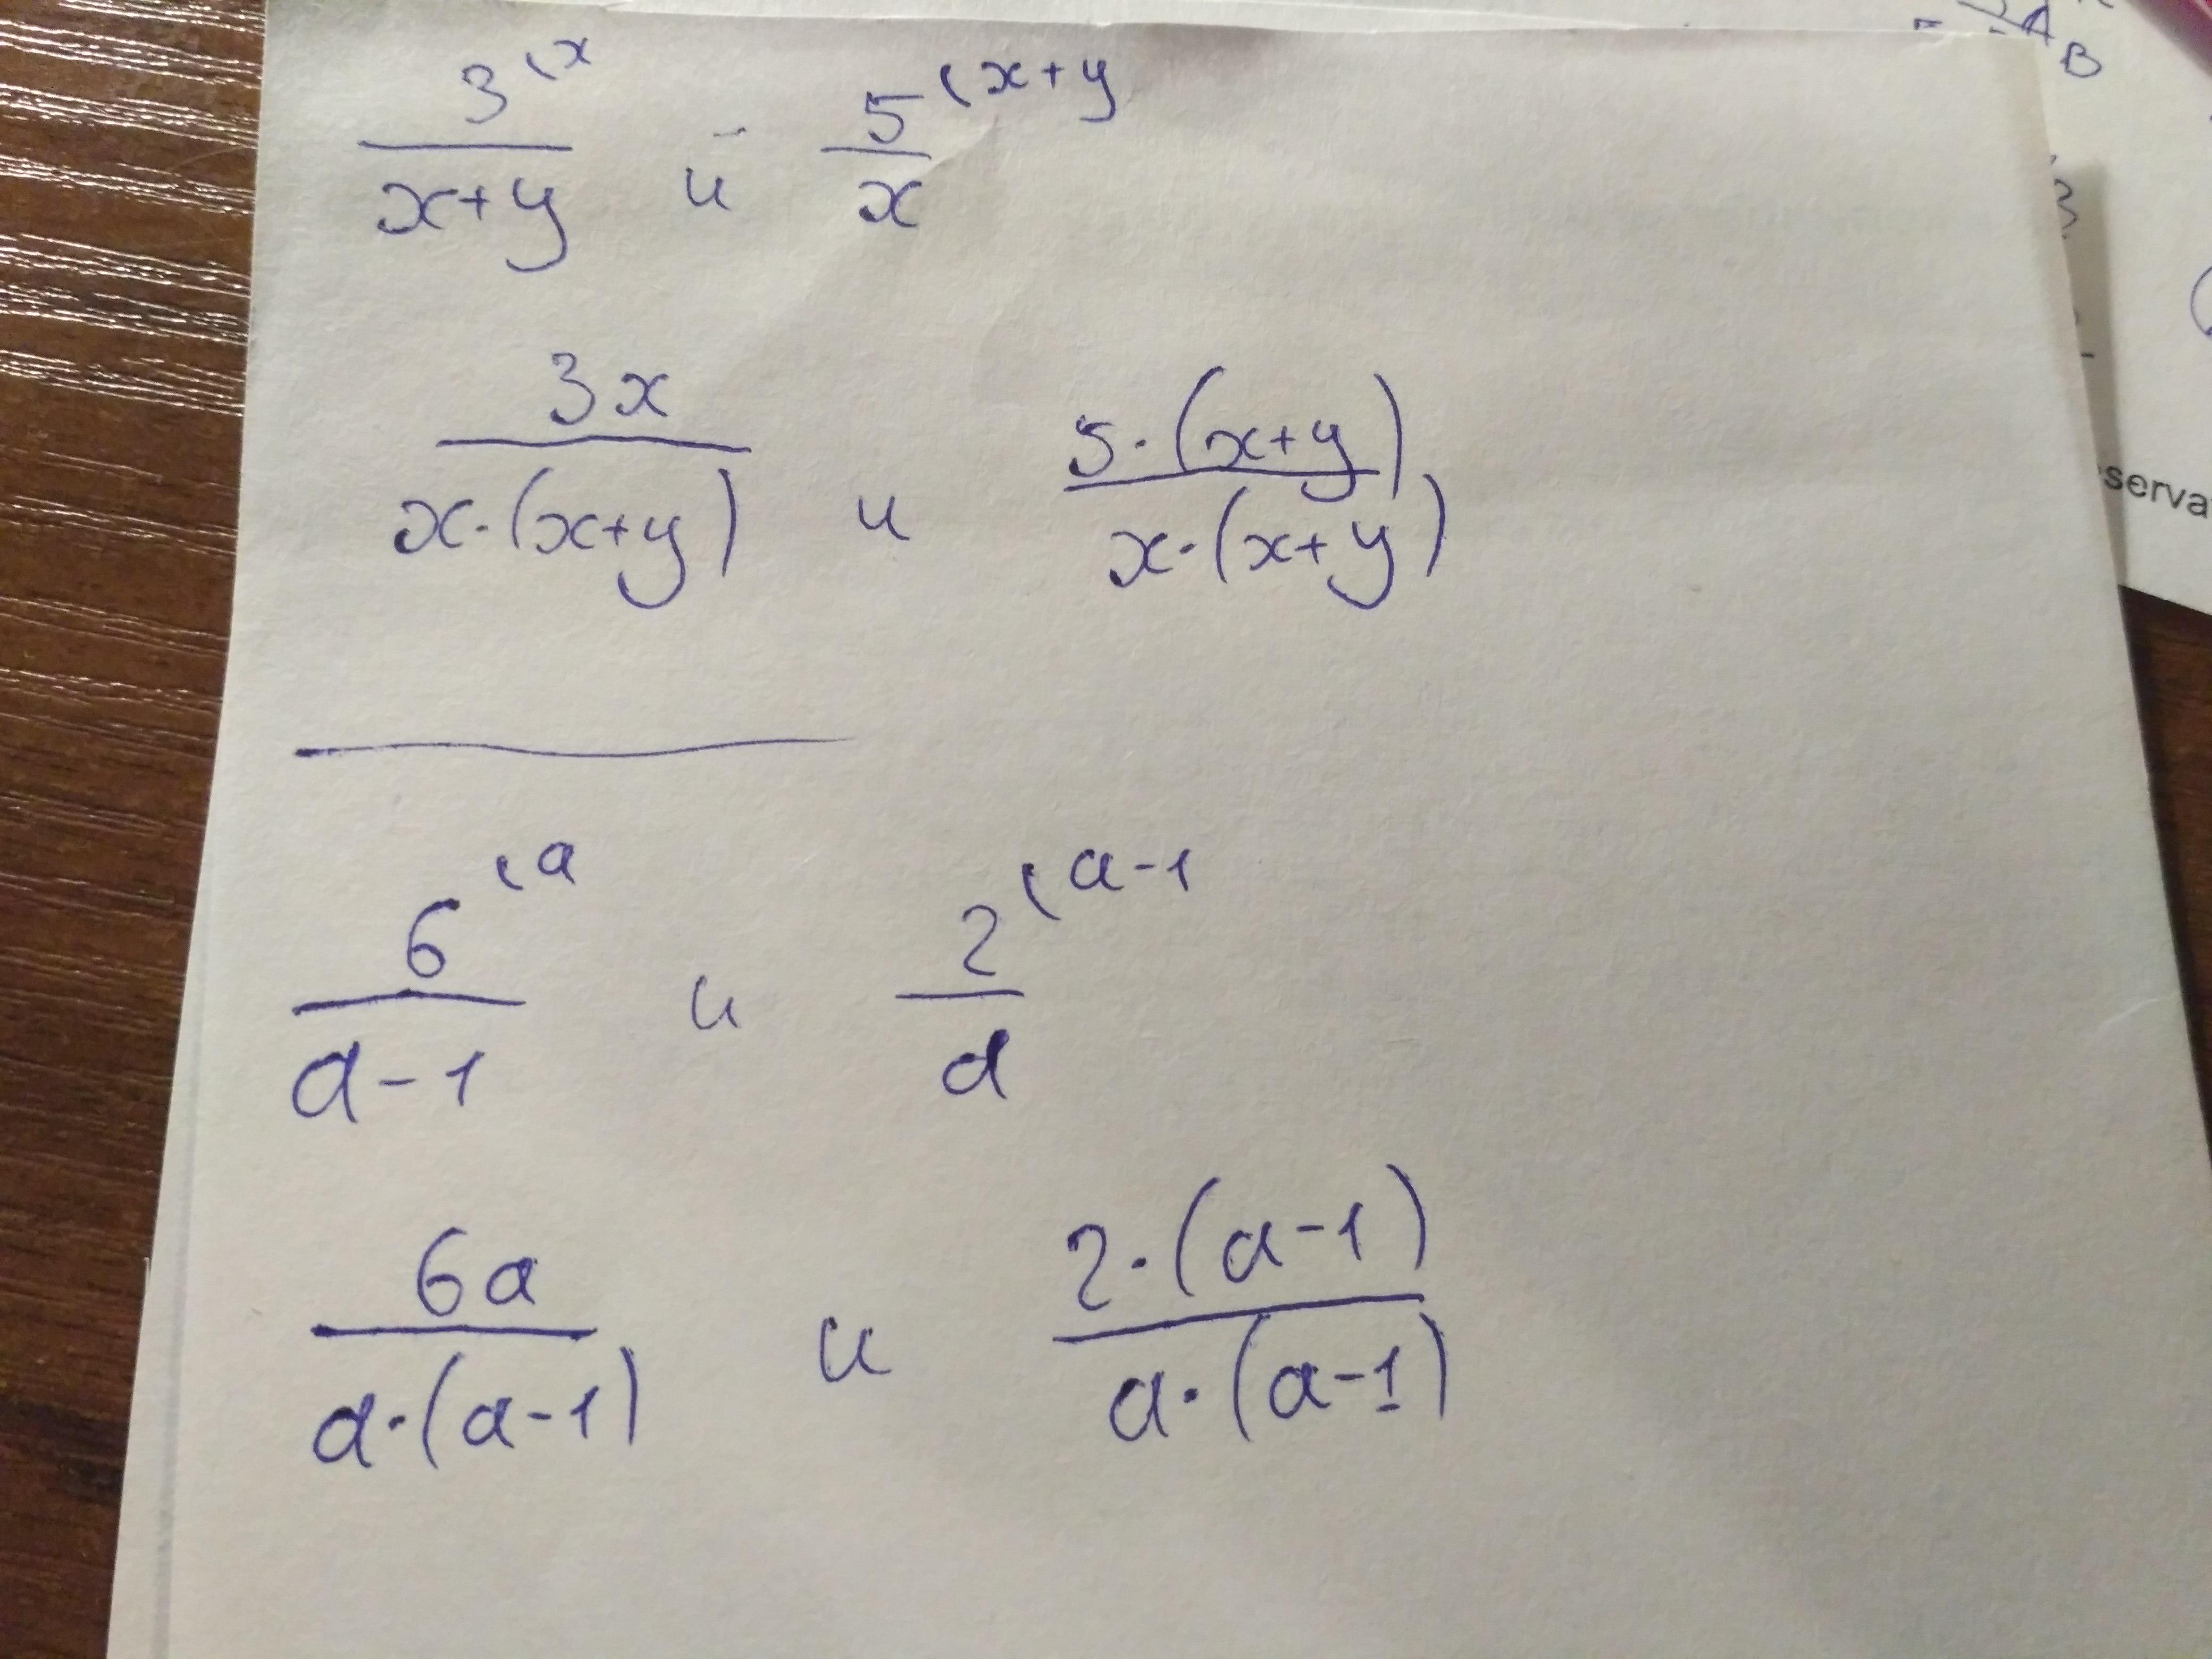 3^(x / x+y и 5^(x+y / x
3x / x·(x+y) и 5·(x+y) / x·(x+y)
6^(a / a-1 и 2^(a-1 / a
6a / a·(a-1) и 2·(a-1) / a·(a-1)
A
B
serva